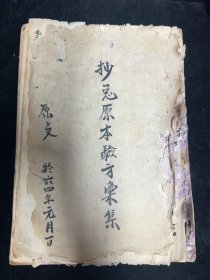 抄兑原本验方汇集
原文
於六四年元月一日